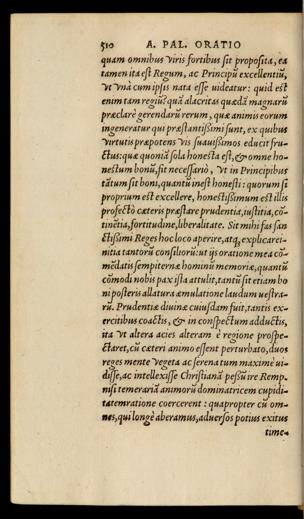 510 A. PAL. ORATIO
quam omnibus viris fortibus sit proposita, ea
tamen ita est Regum, ac Principũ excellentiũ,
vt vnà cum ipsis nata esse uideatur: quid est
enim tam regiũ? quã alacritas quædã magnarũ
præclarè gerendarũ rerum, quæ animis eorum
ingeneratur qui præstantißimi sunt, ex quibus
virtutis præpotens vis suauißimos educit fru-
ctus: quæ quoniã sola honesta est, & omne ho-
nestum bonũ, fit necessariò, vt in Principibus
tãtum sit boni, quantũ inest honesti: quorum si
proprium est excellere, honestißimum est illis
profectò cæteris præstare prudentia, iustitia, cõ-
tinẽtia, fortitudine, liberalitate. Sit mihi fas san
ctißimi Reges hoc loco aperire, atq; explicare i-
nitia tantorũ consiliorũ: ut ijs oratione mea cõ-
mẽdatis sempiternæ hominũ memoriæ, quantũ
cõmodi nobis pax ista attulit, tantũ sit etiam bo
ni posteris allatura æmulatione laudum uestra-
rũ. Prudentiæ diuinæ cuiusdam fuit, tantis ex-
ercitibus coactis, & in conspectum adductis,
ita vt altera acies alteram è regione prospe-
ctaret, cũ cæteri animo essent perturbato, duos
reges mente vegeta ac serena tum maximè ui-
disse, ac intellexisse Christianã pessũ ire Remp.
nisi temerariã animorũ dominatricem cupidi-
tatem ratione coercerent: quapropter cũ om-
nes, qui longè aberamus, aduersos potius exitus
time-